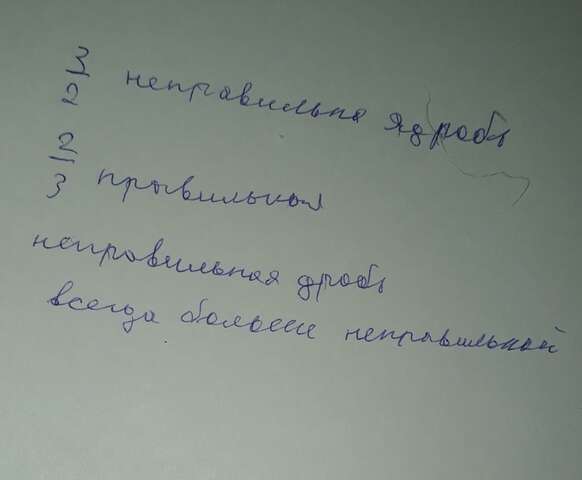 3/2 неправильна ядробь
2/3 прывильная
неправильная дробь
всегда больше неправильной